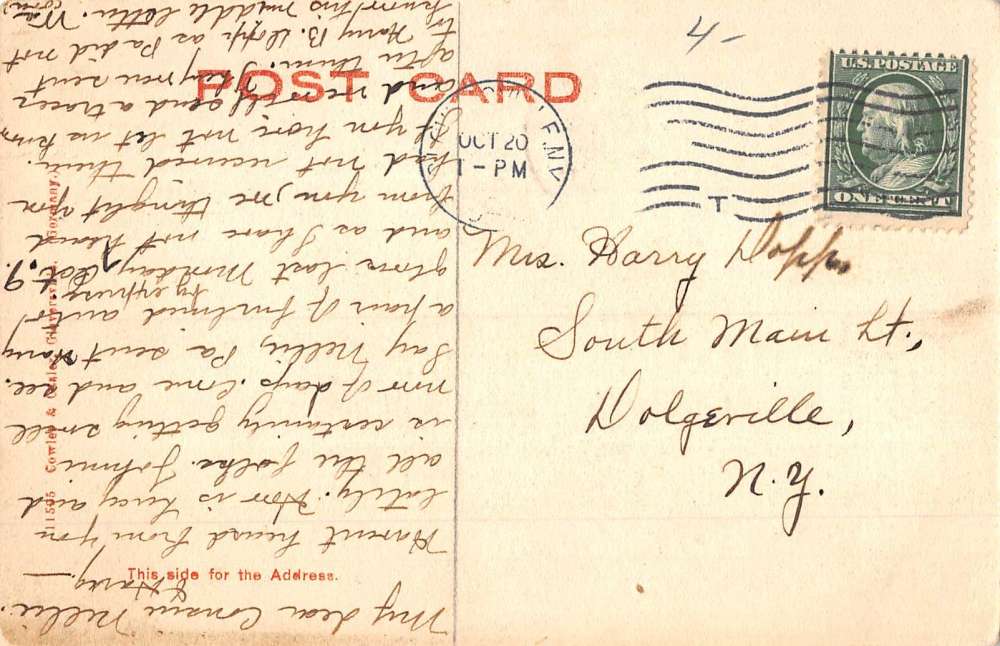 POST CARD
4-
U.S. POSTAGE
ONE CENT
OCT 20
1 - PM
N.Y.
T
Mrs. Harry Dopp
South Main St.,
Dolgeville,
N.Y.
This side for the Address.
111595 Cowles & Gloversville. Germany.
My dear Cousin Nellie.
& Harry,
Havent heard from you
lately. How is Lucy and
all the folks. Johnie
is certainly getting small
now of days. Come and see.
Say Nellie, Pa sent Harry
a pair of furlined auto
by express
glove last Monday Oct. 9,
and as I have not heard
from you, we thought you
had not received them
If you have not let us know
and we will send a tracer
after them. They were sent
to Harry B. Dopp as Pa did not
know his middle letter.